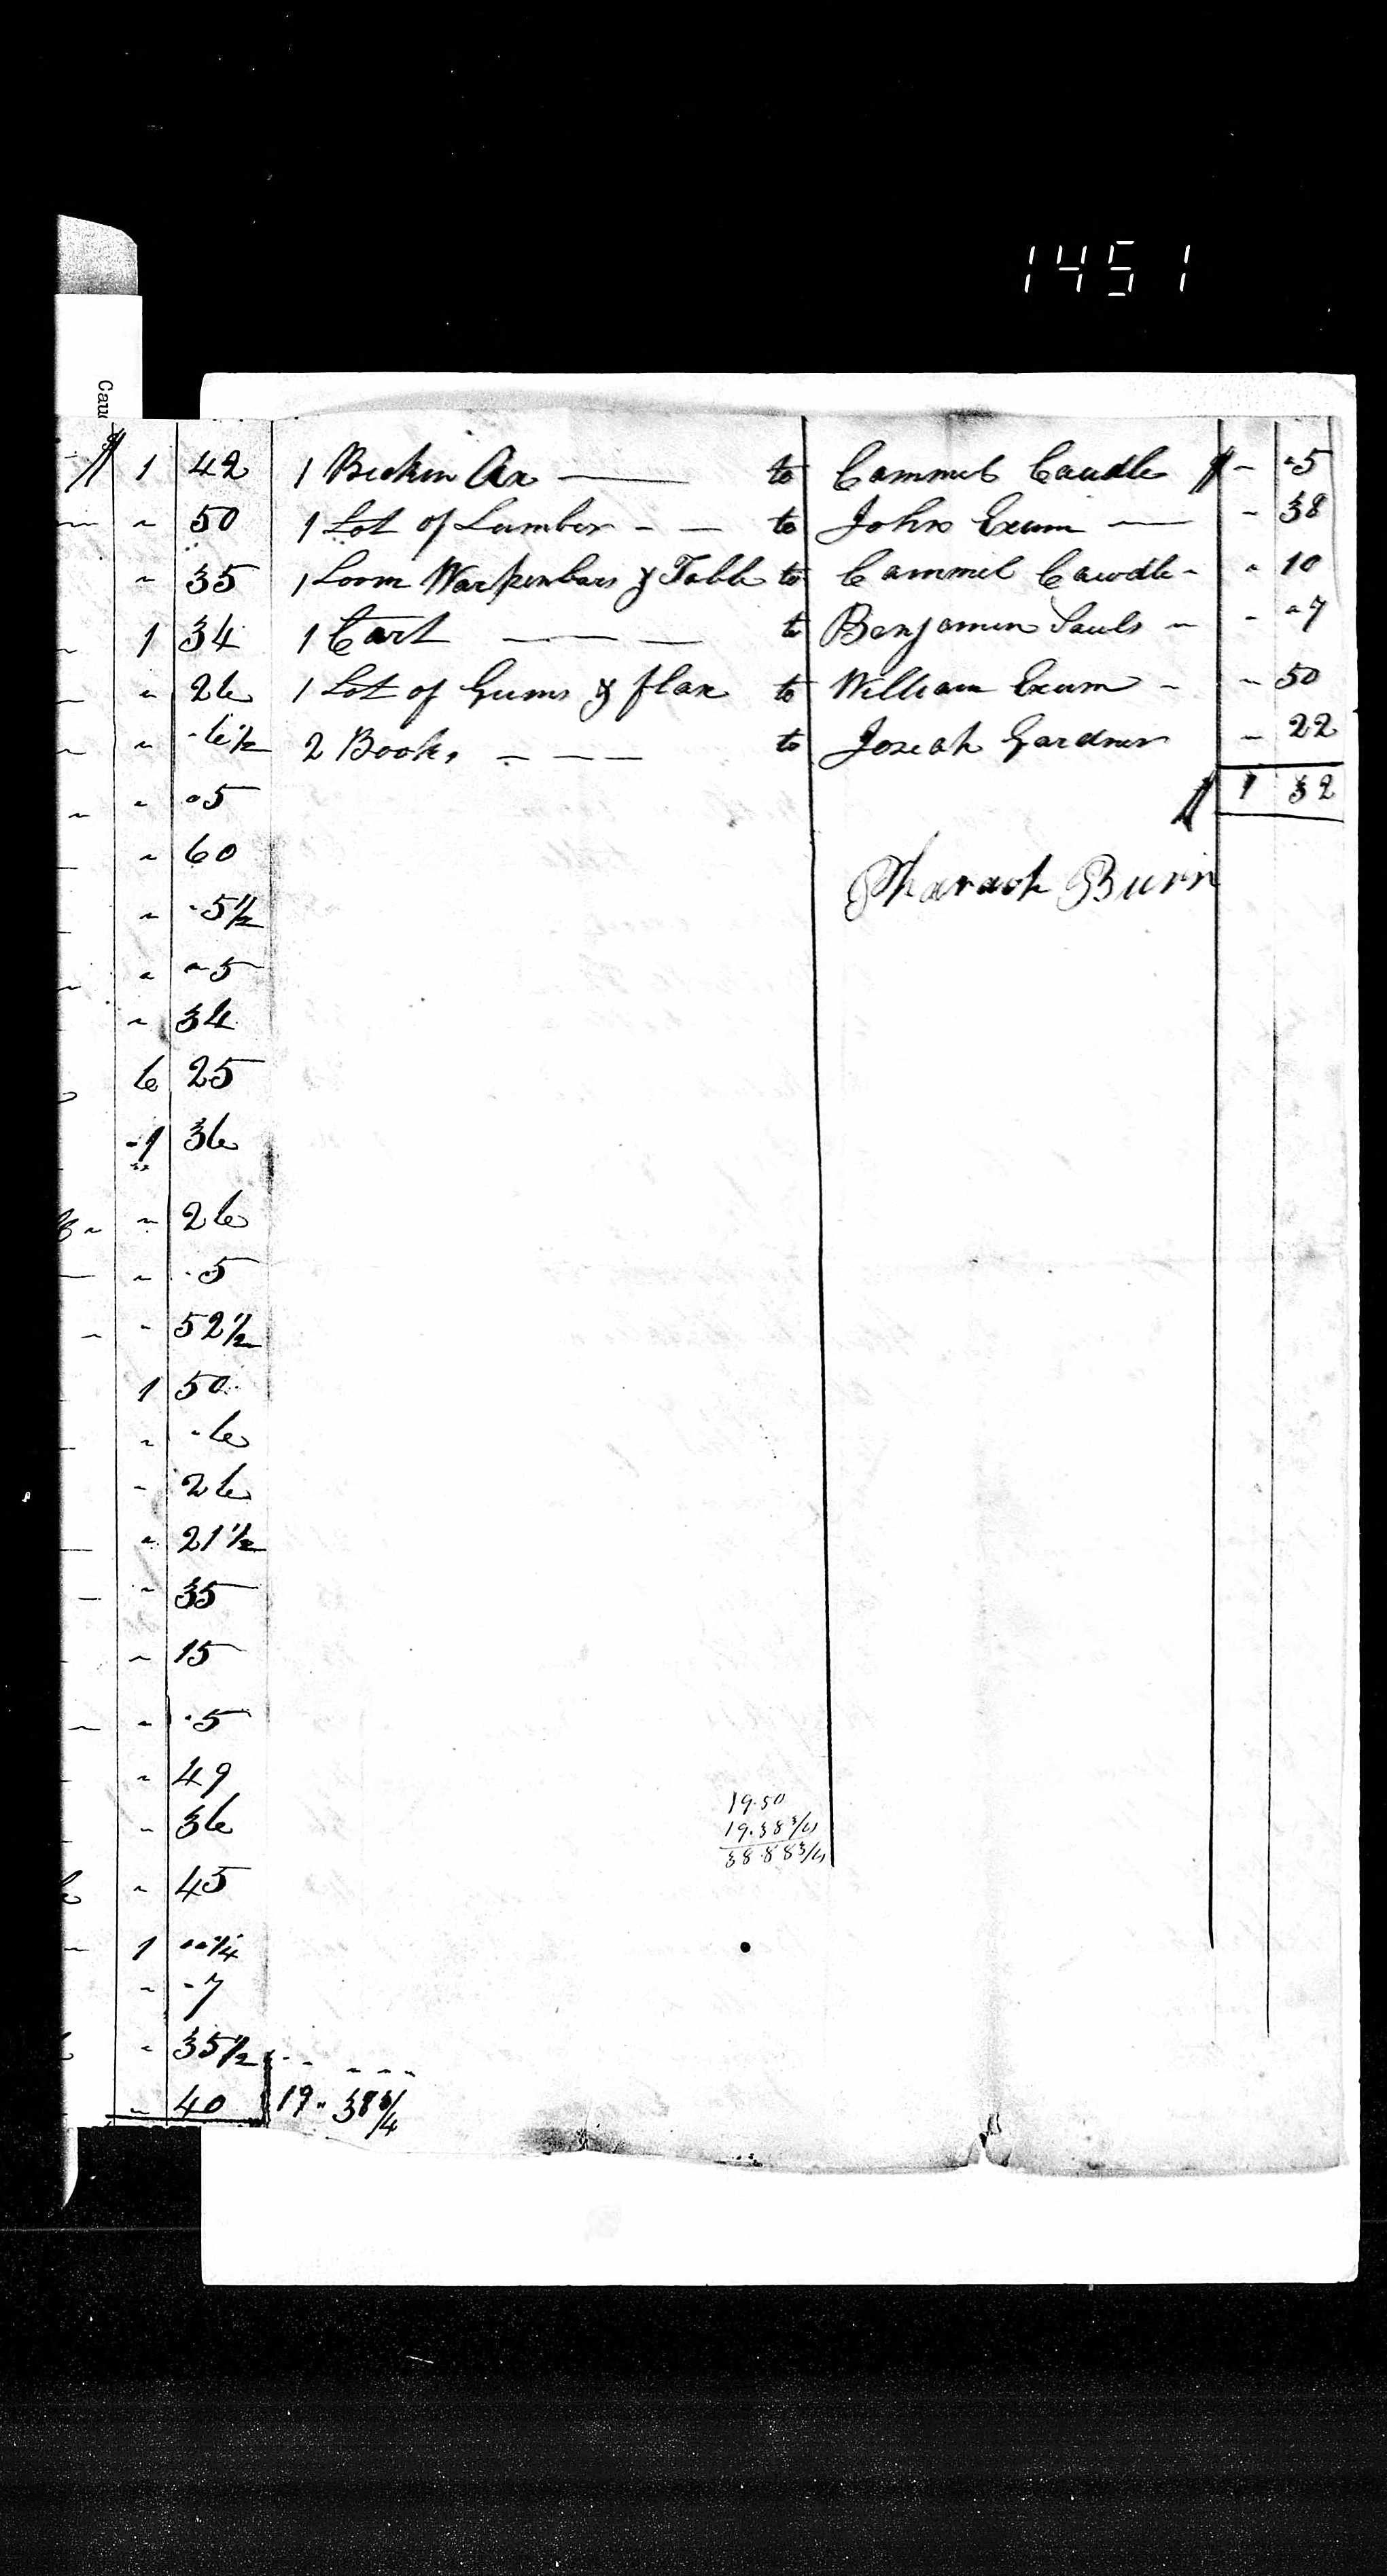 1451
Cau
$ 1 42
" 50
" 35
1 34
" 26
" - 6 1/2
" " 5
" 60
" - 5 1/2
" " 5
" 34
6 25
- 1 36
" 26
" - 5
- 52 1/2
1 50
" - 6
- 26
" 21 1/2
" 35
" 15
" - 5
" 49
" 36
" 45
1 " "
- - 7
" 35 1/2
" 40 19 " 38 3/4
1 Ax — to Cammel Caudle $ - " 5
1 Lot of Lumber - — to John Exum — - 38
1 Loom Warpenbars & Table to Cammel Cawdle - " 10
1 Cart — — — to Benjamin Sauls - - " 7
1 Lot of Gums & flax to William Exum - - 50
2 Books — — — to Josiah Gardner - 22
$ 1 32
Pharaoh Burn
19.50
19.38 3/4
38.88 3/4